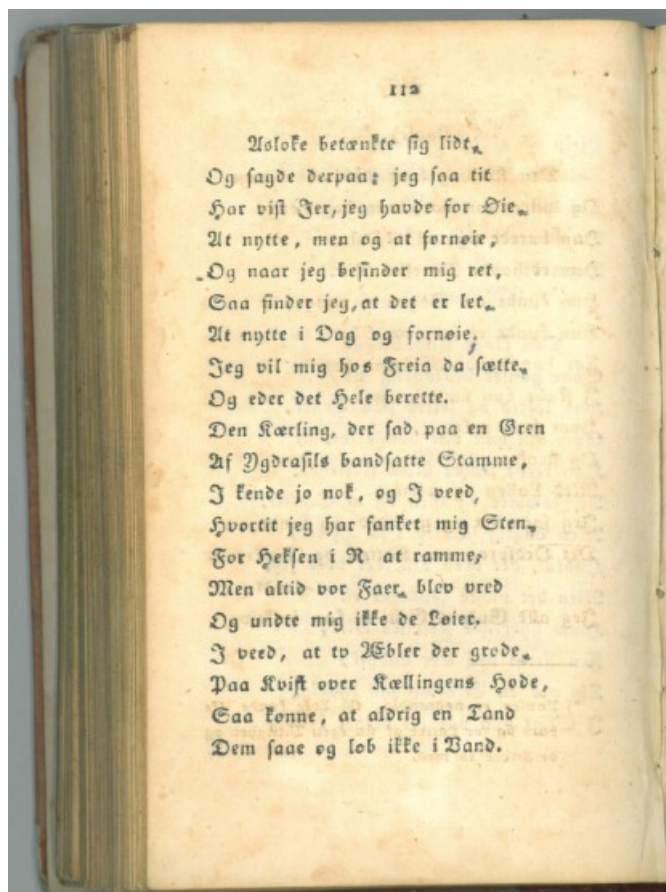 112
Asloke betænkte sig lidt,
Og sagde derpaa: jeg saa tit
Har vist Jer, jeg havde for Øie,
At nytte, men og at fornøie,
Og naar jeg besinder mig ret,
Saa finder jeg, at det er let,
At nytte i Dag og fornøie,
Jeg vil mig hos Freia da sætte,
Og eder det Hele berette.
Den Kærling, der sad paa en Gren
Af Ygdrasils bandsatte Stamme,
I kende jo nok, og I veed,
Hvortit jeg har sanket mig Sten,
For Heksen i R at ramme,
Men altid vor Faer, blev vred
Og undte mig ikke de Løier.
I veed, at tv Æbler der grode,
Paa Kvist over Kællingens Hode,
Saa kønne, at aldrig en Tand
Dem saae og løb ikke i Vand.